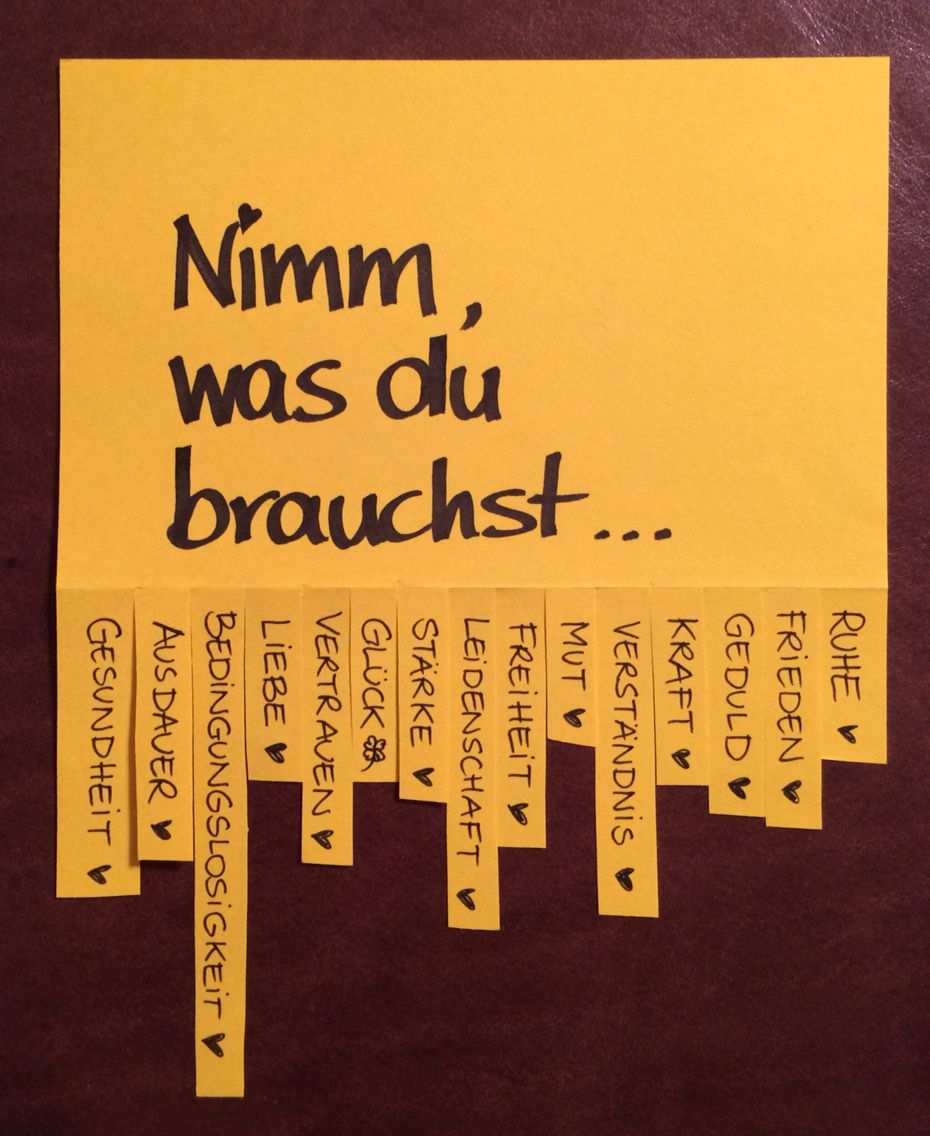 Nimm,
was du
brauchst...
GESUNDHEIT
AUSDAUER
BEDINGUNGSLOSIGKEIT
LIEBE
VERTRAUEN
GLÜCK
STÄRKE
LEIDENSCHAFT
FREIHEIT
MUT
VERSTÄNDNIS
KRAFT
GEDULD
FRIEDEN
RUHE